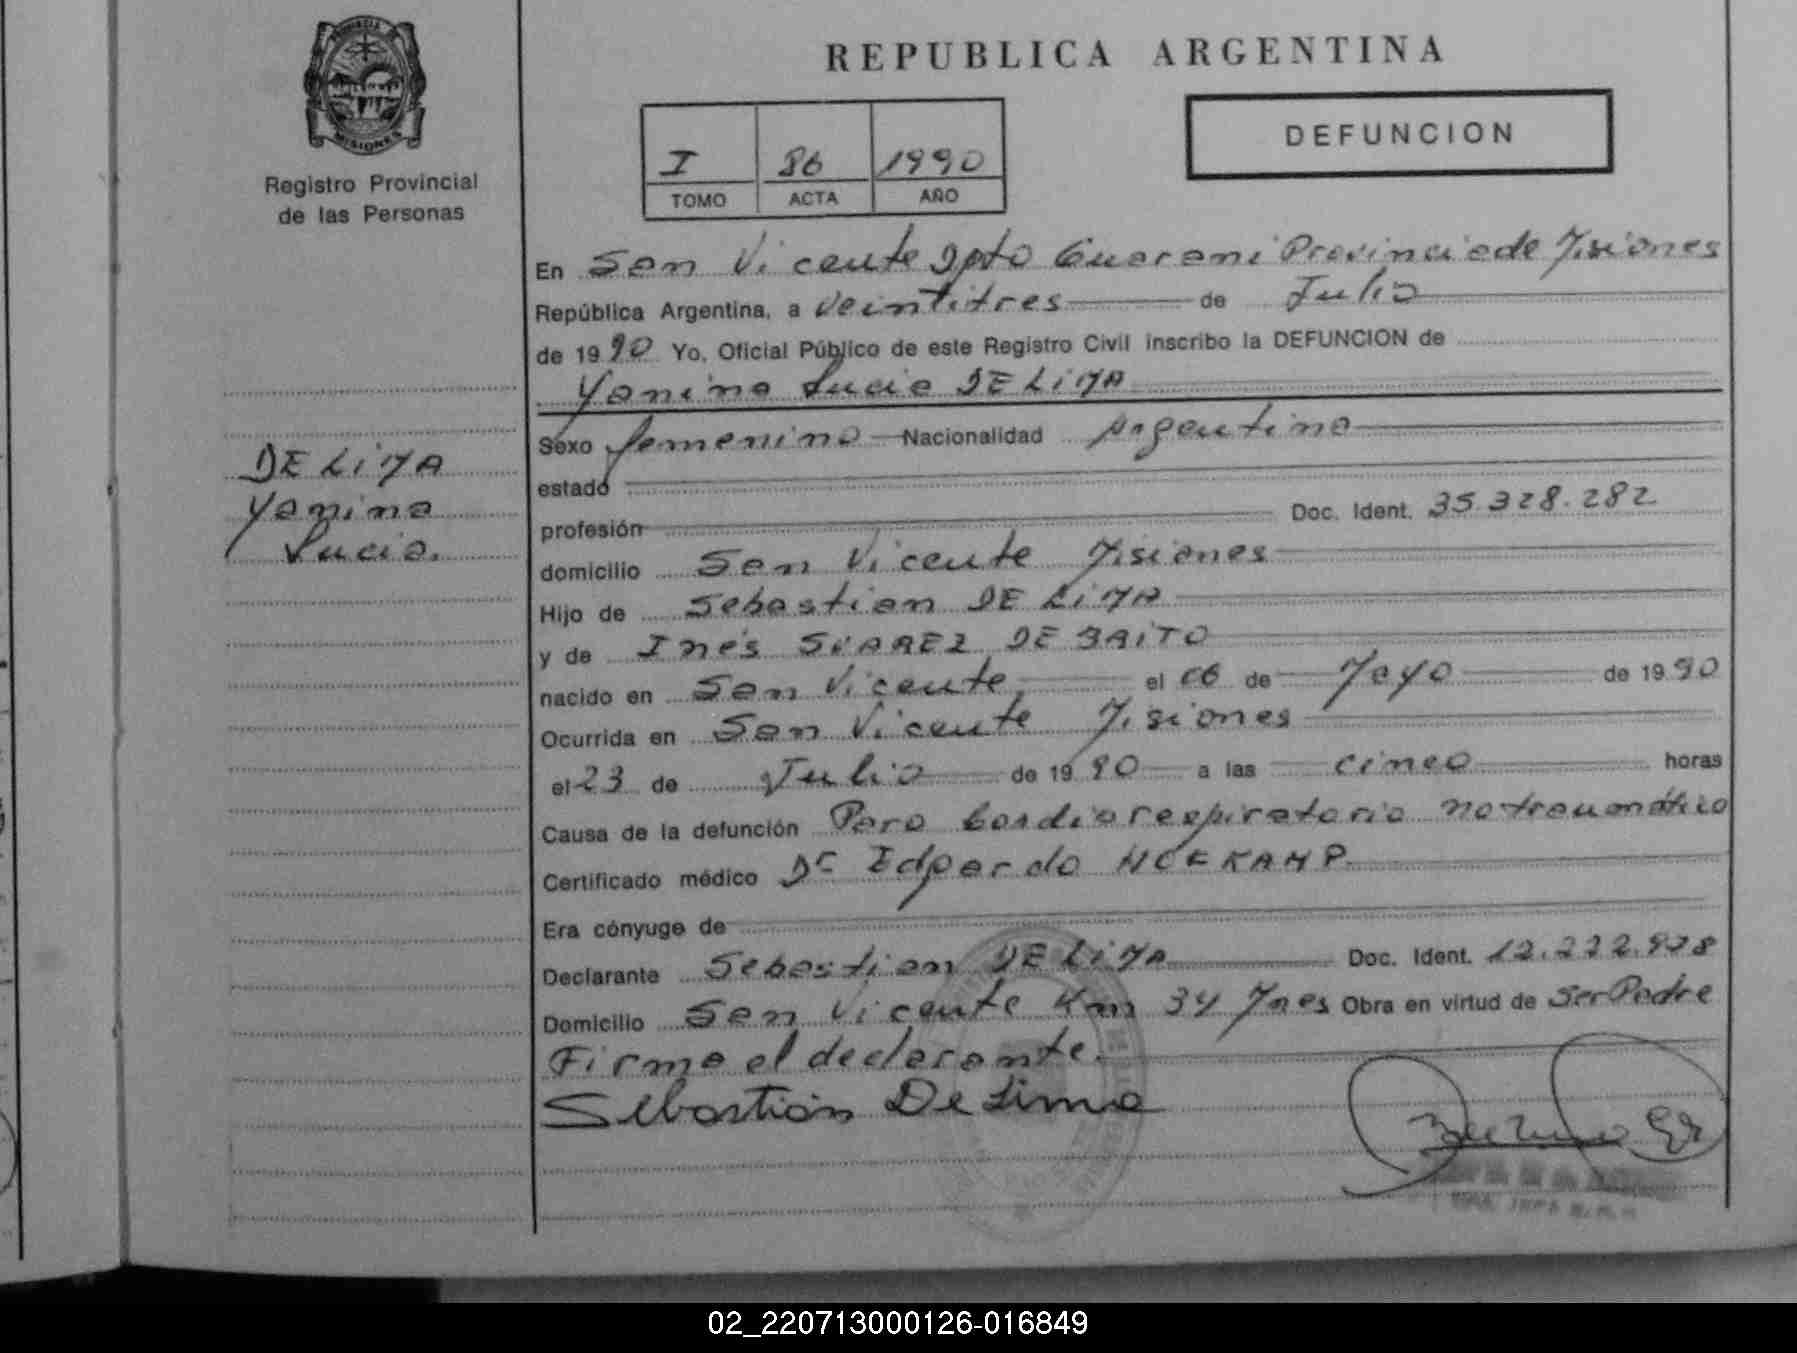 PROVINCIA DE
MISIONES
Registro Provincial
de las Personas
REPUBLICA ARGENTINA
I 86 1990
TOMO ACTA AÑO
DEFUNCION
En San Vicente Dpto Guarani Provincia de Misiones
República Argentina, a veintitres de Julio
de 1990 Yo, Oficial Público de este Registro Civil inscribo la DEFUNCION de
Yanina Lucia DE LIMA
DE LIMA
Yanina
Lucia.
Sexo femenino Nacionalidad Argentina
estado
profesión Doc. Ident. 35.328.282
domicilio San Vicente Misiones
Hijo de Sebastian DE LIMA
y de Inés SUAREZ DE BRITO
nacido en San Vicente el 06 de Mayo de 1990
Ocurrida en San Vicente Misiones
el 23 de Julio de 1990 a las cinco horas
Causa de la defunción Paro Cardiorespiratorio no traumático
Certificado médico Dr Edgardo
Era cónyuge de
Declarante Sebastian DE LIMA Doc. Ident. 12.222.928
Domicilio San Vicente Km 34 Mnes Obra en virtud de Ser Padre
Firma el declarante.
Sebastián De Lima
02_220713000126-016849